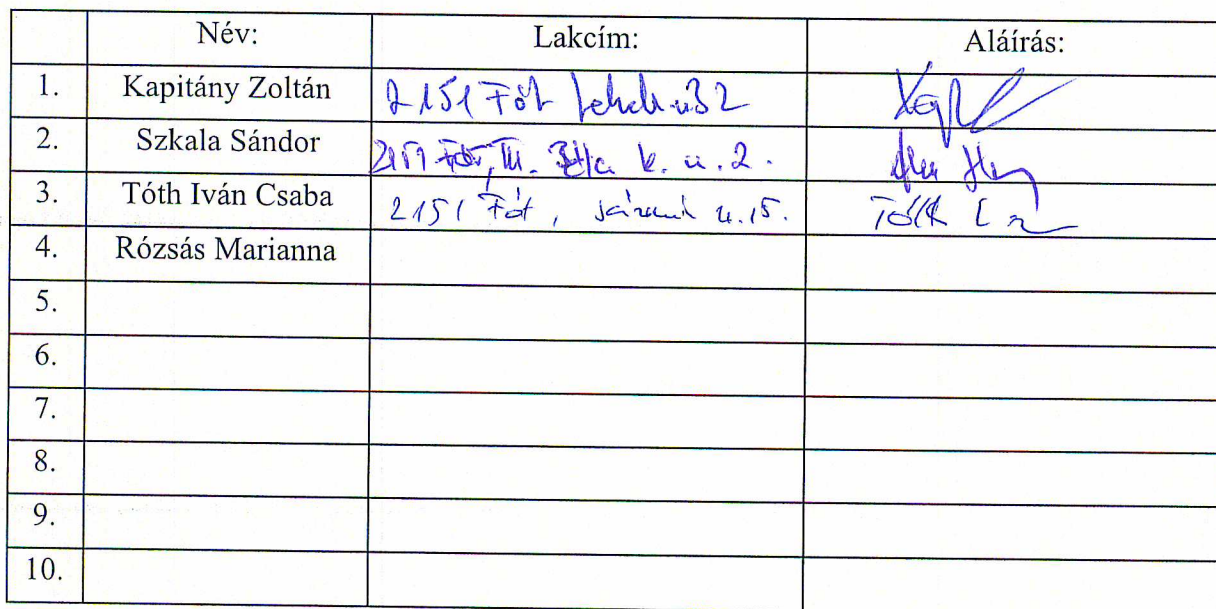 Név: Lakcím: Aláírás:
1. Kapitány Zoltán 2151 Fót u 32
2. Szkala Sándor 2151 Fót, III. Béla k. u. 2.
3. Tóth Iván Csaba 2151 Fót, u. 15. Tóth
4. Rózsás Marianna
5.
6.
7.
8.
9.
10.